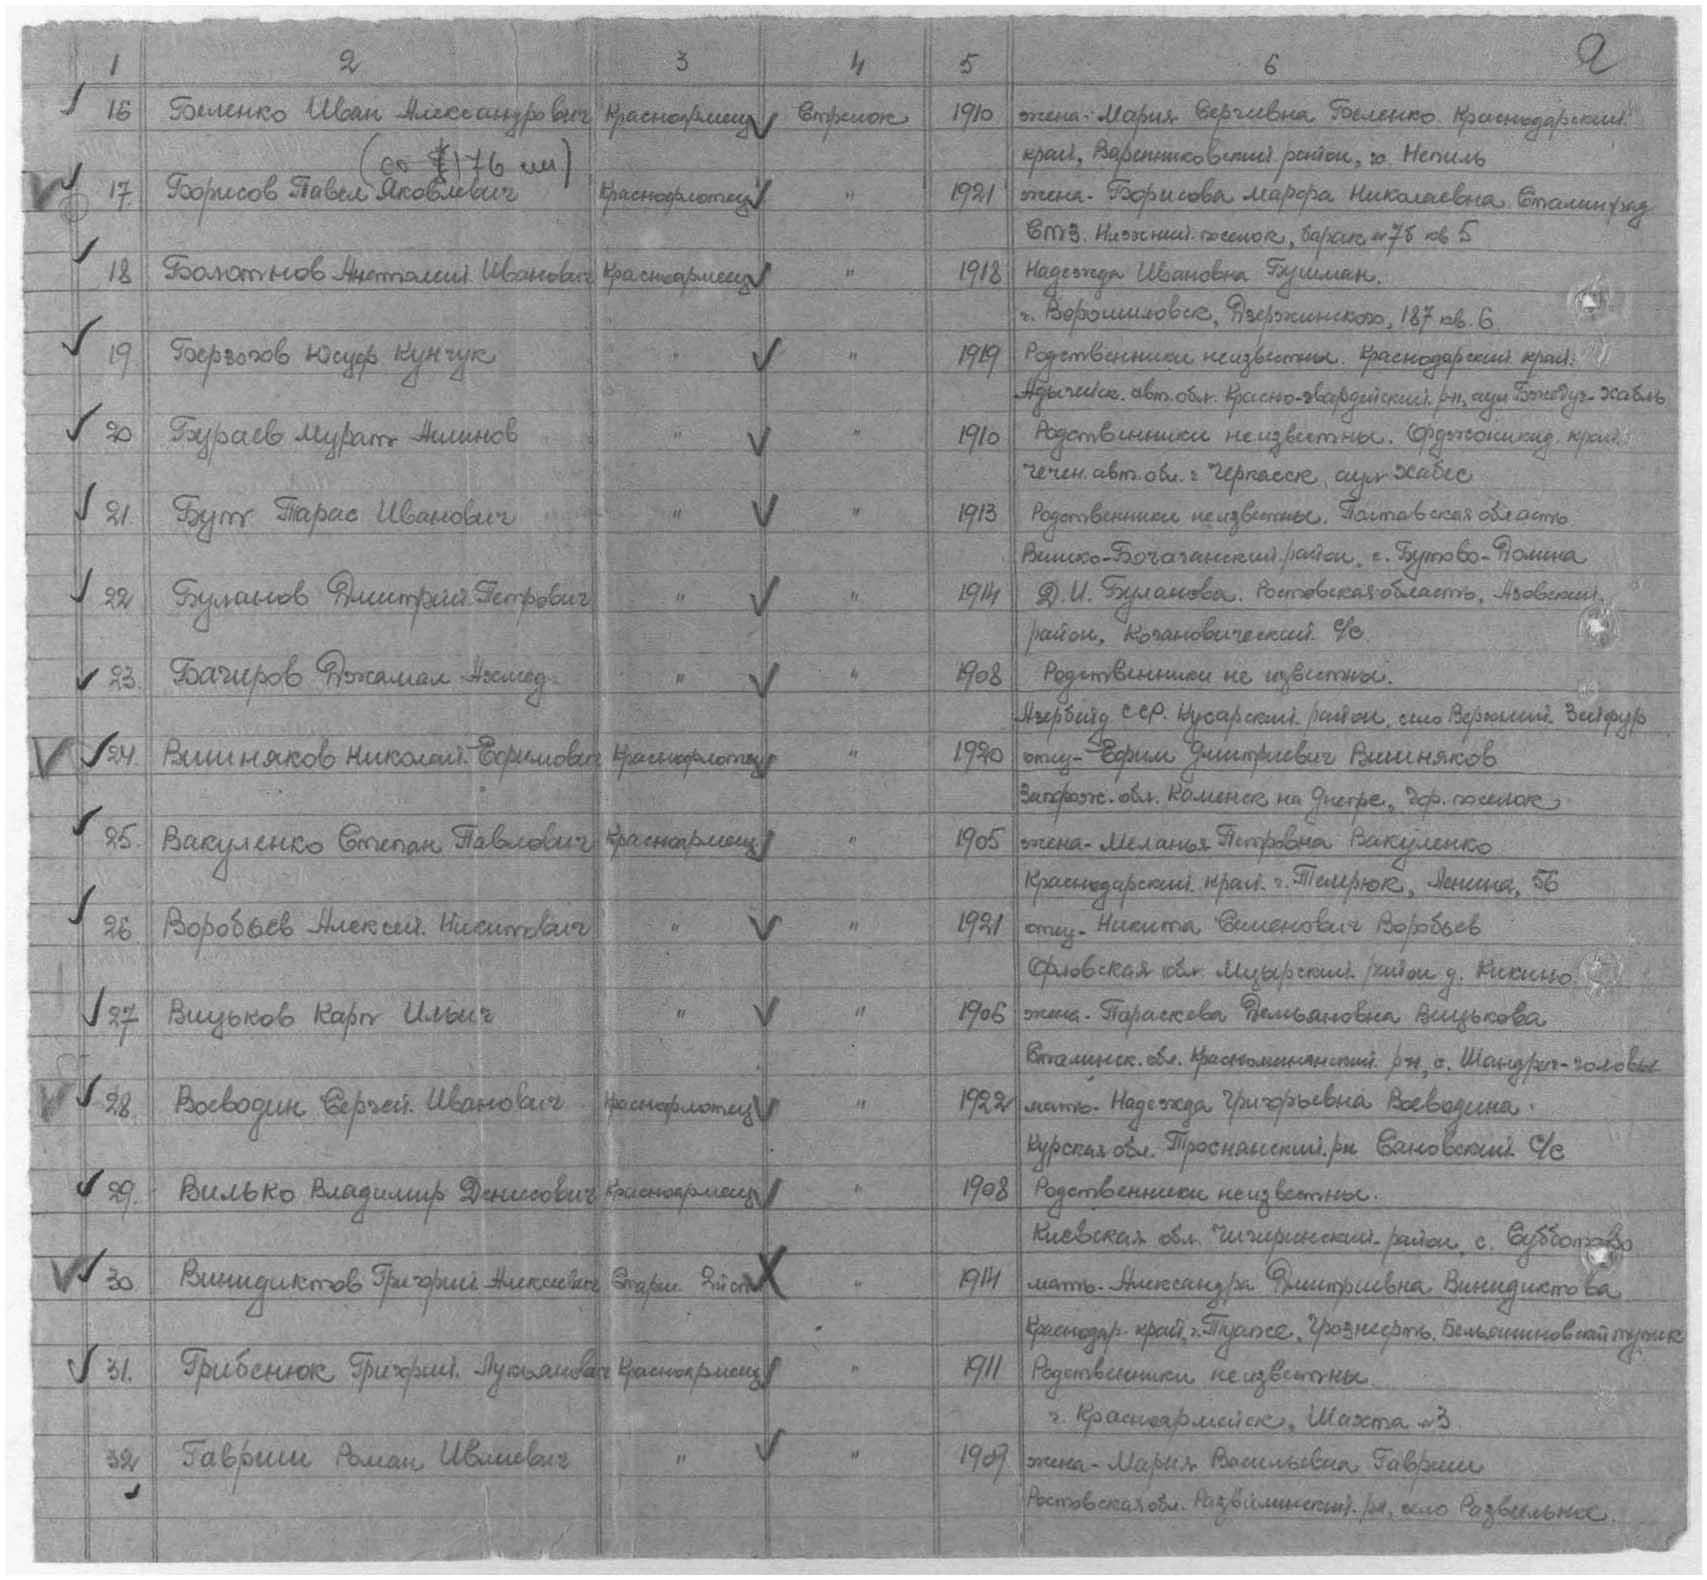 1 2 3 4 5 6
16 Беленко Иван Александрович Красноармеец Стрелок 1910 жена - Мария Сергеевна Беленко Краснодарский
край, Варениковский район,
17. Борисов Павел Яковлевич Краснофлотец " 1921 жена - Борисова Марфа Николаевна. Сталинград
СТЗ. Нижний поселок, барак № 78 кв 5
18 Болотнов Анатолий Иванович Красноармеец " 1918 Надежда Ивановна Бушман.
г. Ворошиловск, Дзержинского, 187 кв. 6
19. Берзогов Юсуф Кунчук " " 1919 Родственники неизвестны. Краснодарский край.
Адыгейск. авт. обл. Красно-гвардейский рн, аул Бжедуг-Хабль
20 Бураев Мурат Алинов " " 1910 Родственники неизвестны. Орджоникид. край.
авт. обл. г Черкасск, аул Хабес
21. Бут Тарас Иванович " " 1913 Родственники неизвестны. Полтавская область
район, с. Бутово-Долина
22 Буланов Дмитрий Петрович " " 1914 Д. И. Буланова. Ростовская область, Азовский
район, с/с.
23. Багиров Джамал Ахмед " " 1908 Родственники не известны.
Азербайд ССР. Кусарский район, село Верхний
24. Вишняков Николай Ефимович Краснофлотец " 1920 отец - Ефим Дмитриевич Вишняков
Запорож. обл. Каменск на Днепре, поселок
25. Вакуленко Степан Павлович Красноармеец " 1905 жена - Меланья Петровна Вакуленко
Краснодарский край г. Темрюк, Ленина, 56
26 Воробьев Алексей Никитович " " 1921 отец - Никита Семенович Воробьев
Орловская обл. район д. Кикино
27 Вицьков Карп Ильич " " 1906 жена - Параскева Демьяновна Вицькова
Сталинск. обл. рн, с.
28. Воеводин Сергей Иванович Краснофлотец " 1922 мать - Надежда Григорьевна Воеводина
Курская обл. Троснянский рн Сановский с/с
29. Вилько Владимир Денисович Красноармеец " 1908 Родственники неизвестны.
Киевская обл. Чигиринский район, с. Субботово
30 Винидиктов Григорий Алексеевич Старш. 2й ст " 1914 мать - Александра Дмитриевна Винидиктова
Краснодар. край, г. Туапсе, Грознефть, тупик
31. Грибенюк Григорий Лукьянович Красноармеец " 1911 Родственники неизвестны
г. Красноармейск, Шахта № 3
32 Гавриш Роман Иванович " " 1907 жена - Мария Васильевна Гавриш
Ростовская обл. Развиленский рн, село Развильное.